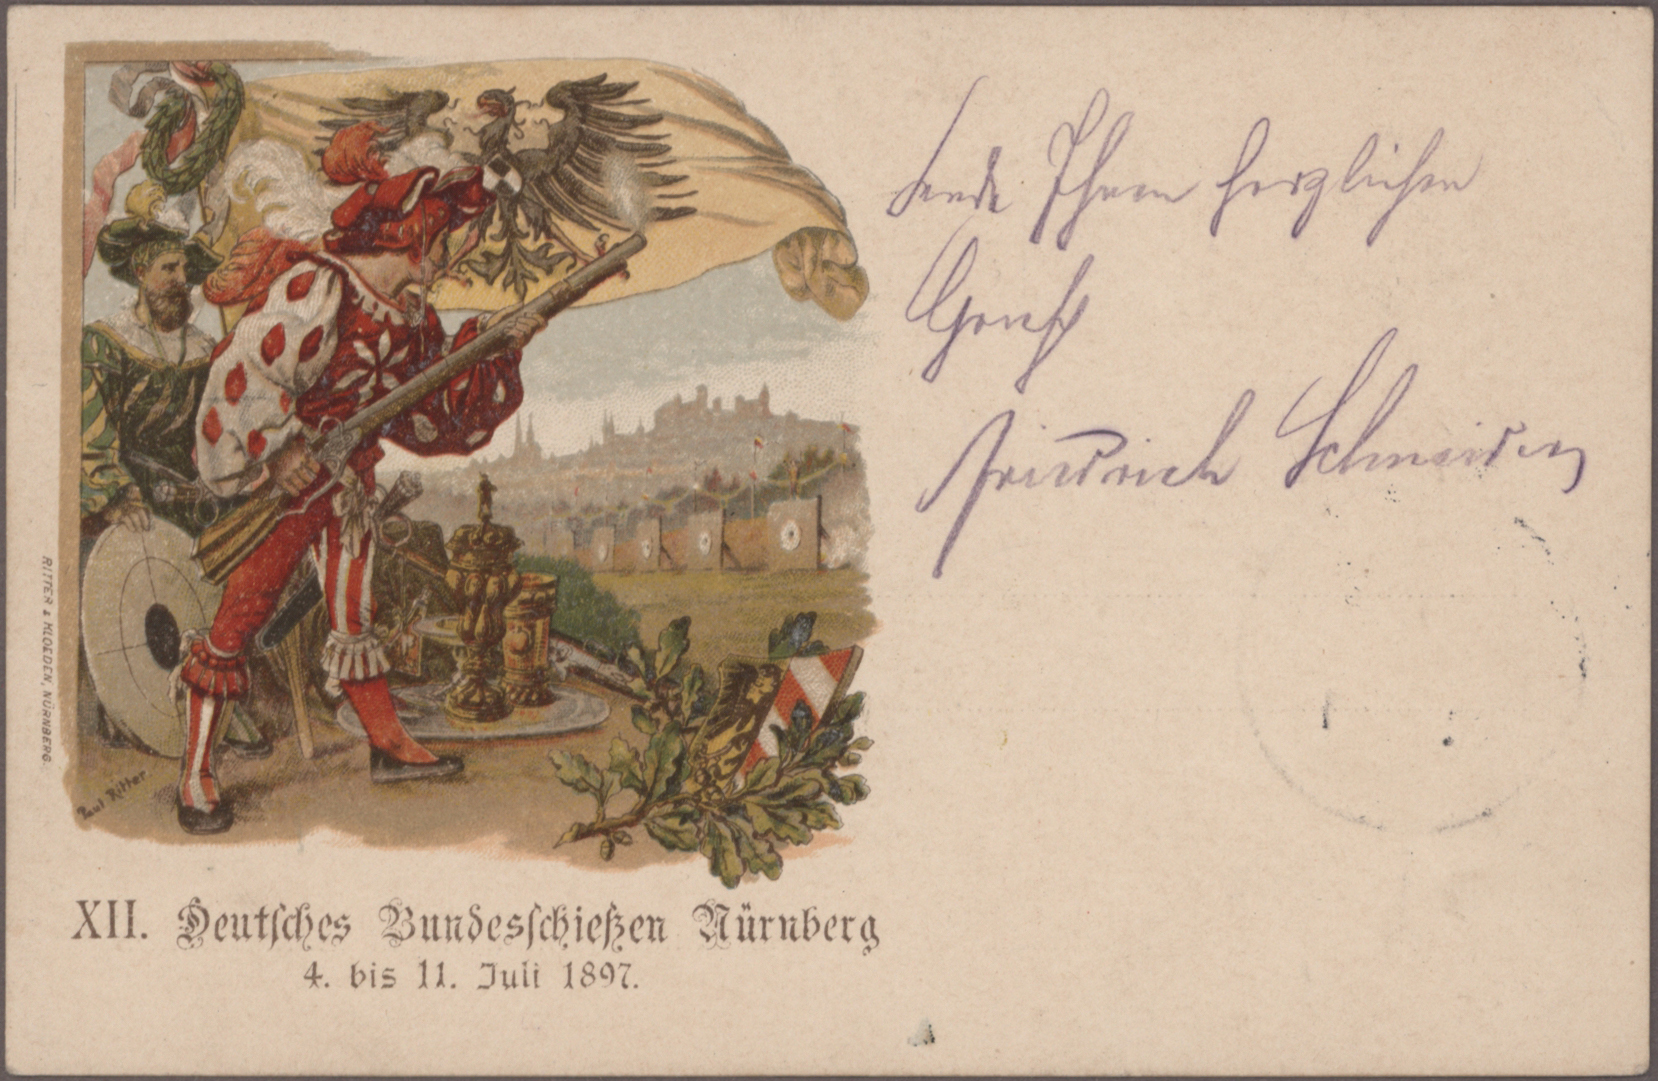 Sende Ihnen herzlichen
Gruß
Friedrich Schneider
RITTER & KLOEDEN, NÜRNBERG.
Paul Ritter
XII. Deutſches Bundesſchießen Nürnberg
4. bis 11. Juli 1897.